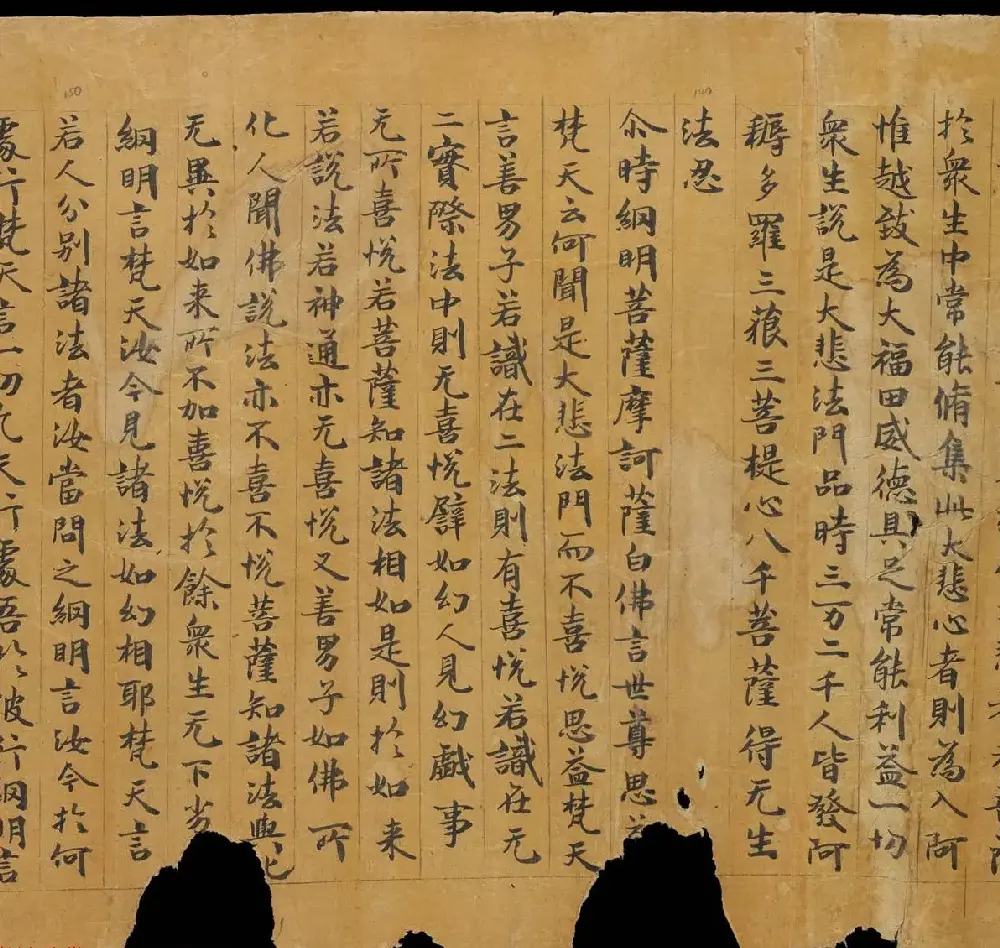 於衆生中常能脩集此大悲心者則為入阿
惟越致為大福田威德具足常能利益一切
衆生說是大悲法門品時三万二千人皆發阿
耨多羅三藐三菩提心八千菩薩得无生
法忍
尒時綱明菩薩摩訶薩白佛言世尊思益
梵天云何聞是大悲法門而不喜悅思益梵天
言善男子若識在二法則有喜悅若識在无
二實際法中則无喜悅譬如幻人見幻戲事
无所喜悅若菩薩知諸法相如是則於如来
若說法若神通亦无喜悅又善男子如佛所
化人聞佛說法亦不喜不悅菩薩知諸法與化
无異於如来所不加喜悅於餘衆生无下劣
綱明言梵天汝今見諸法如幻相耶梵天言
若人分別諸法者汝當問之綱明言汝今於何
處行梵天言一切凡夫行處吾於彼行綱明言